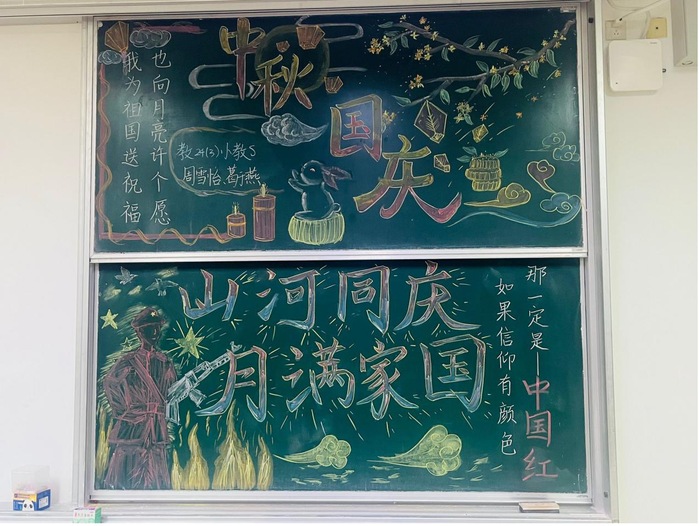 中秋
国庆
也向月亮许个愿
我为祖国送祝福
教24(3)小教S
周雪怡、葛于燕
山河同庆
月满家国
如果信仰有颜色
那一定是——中国红